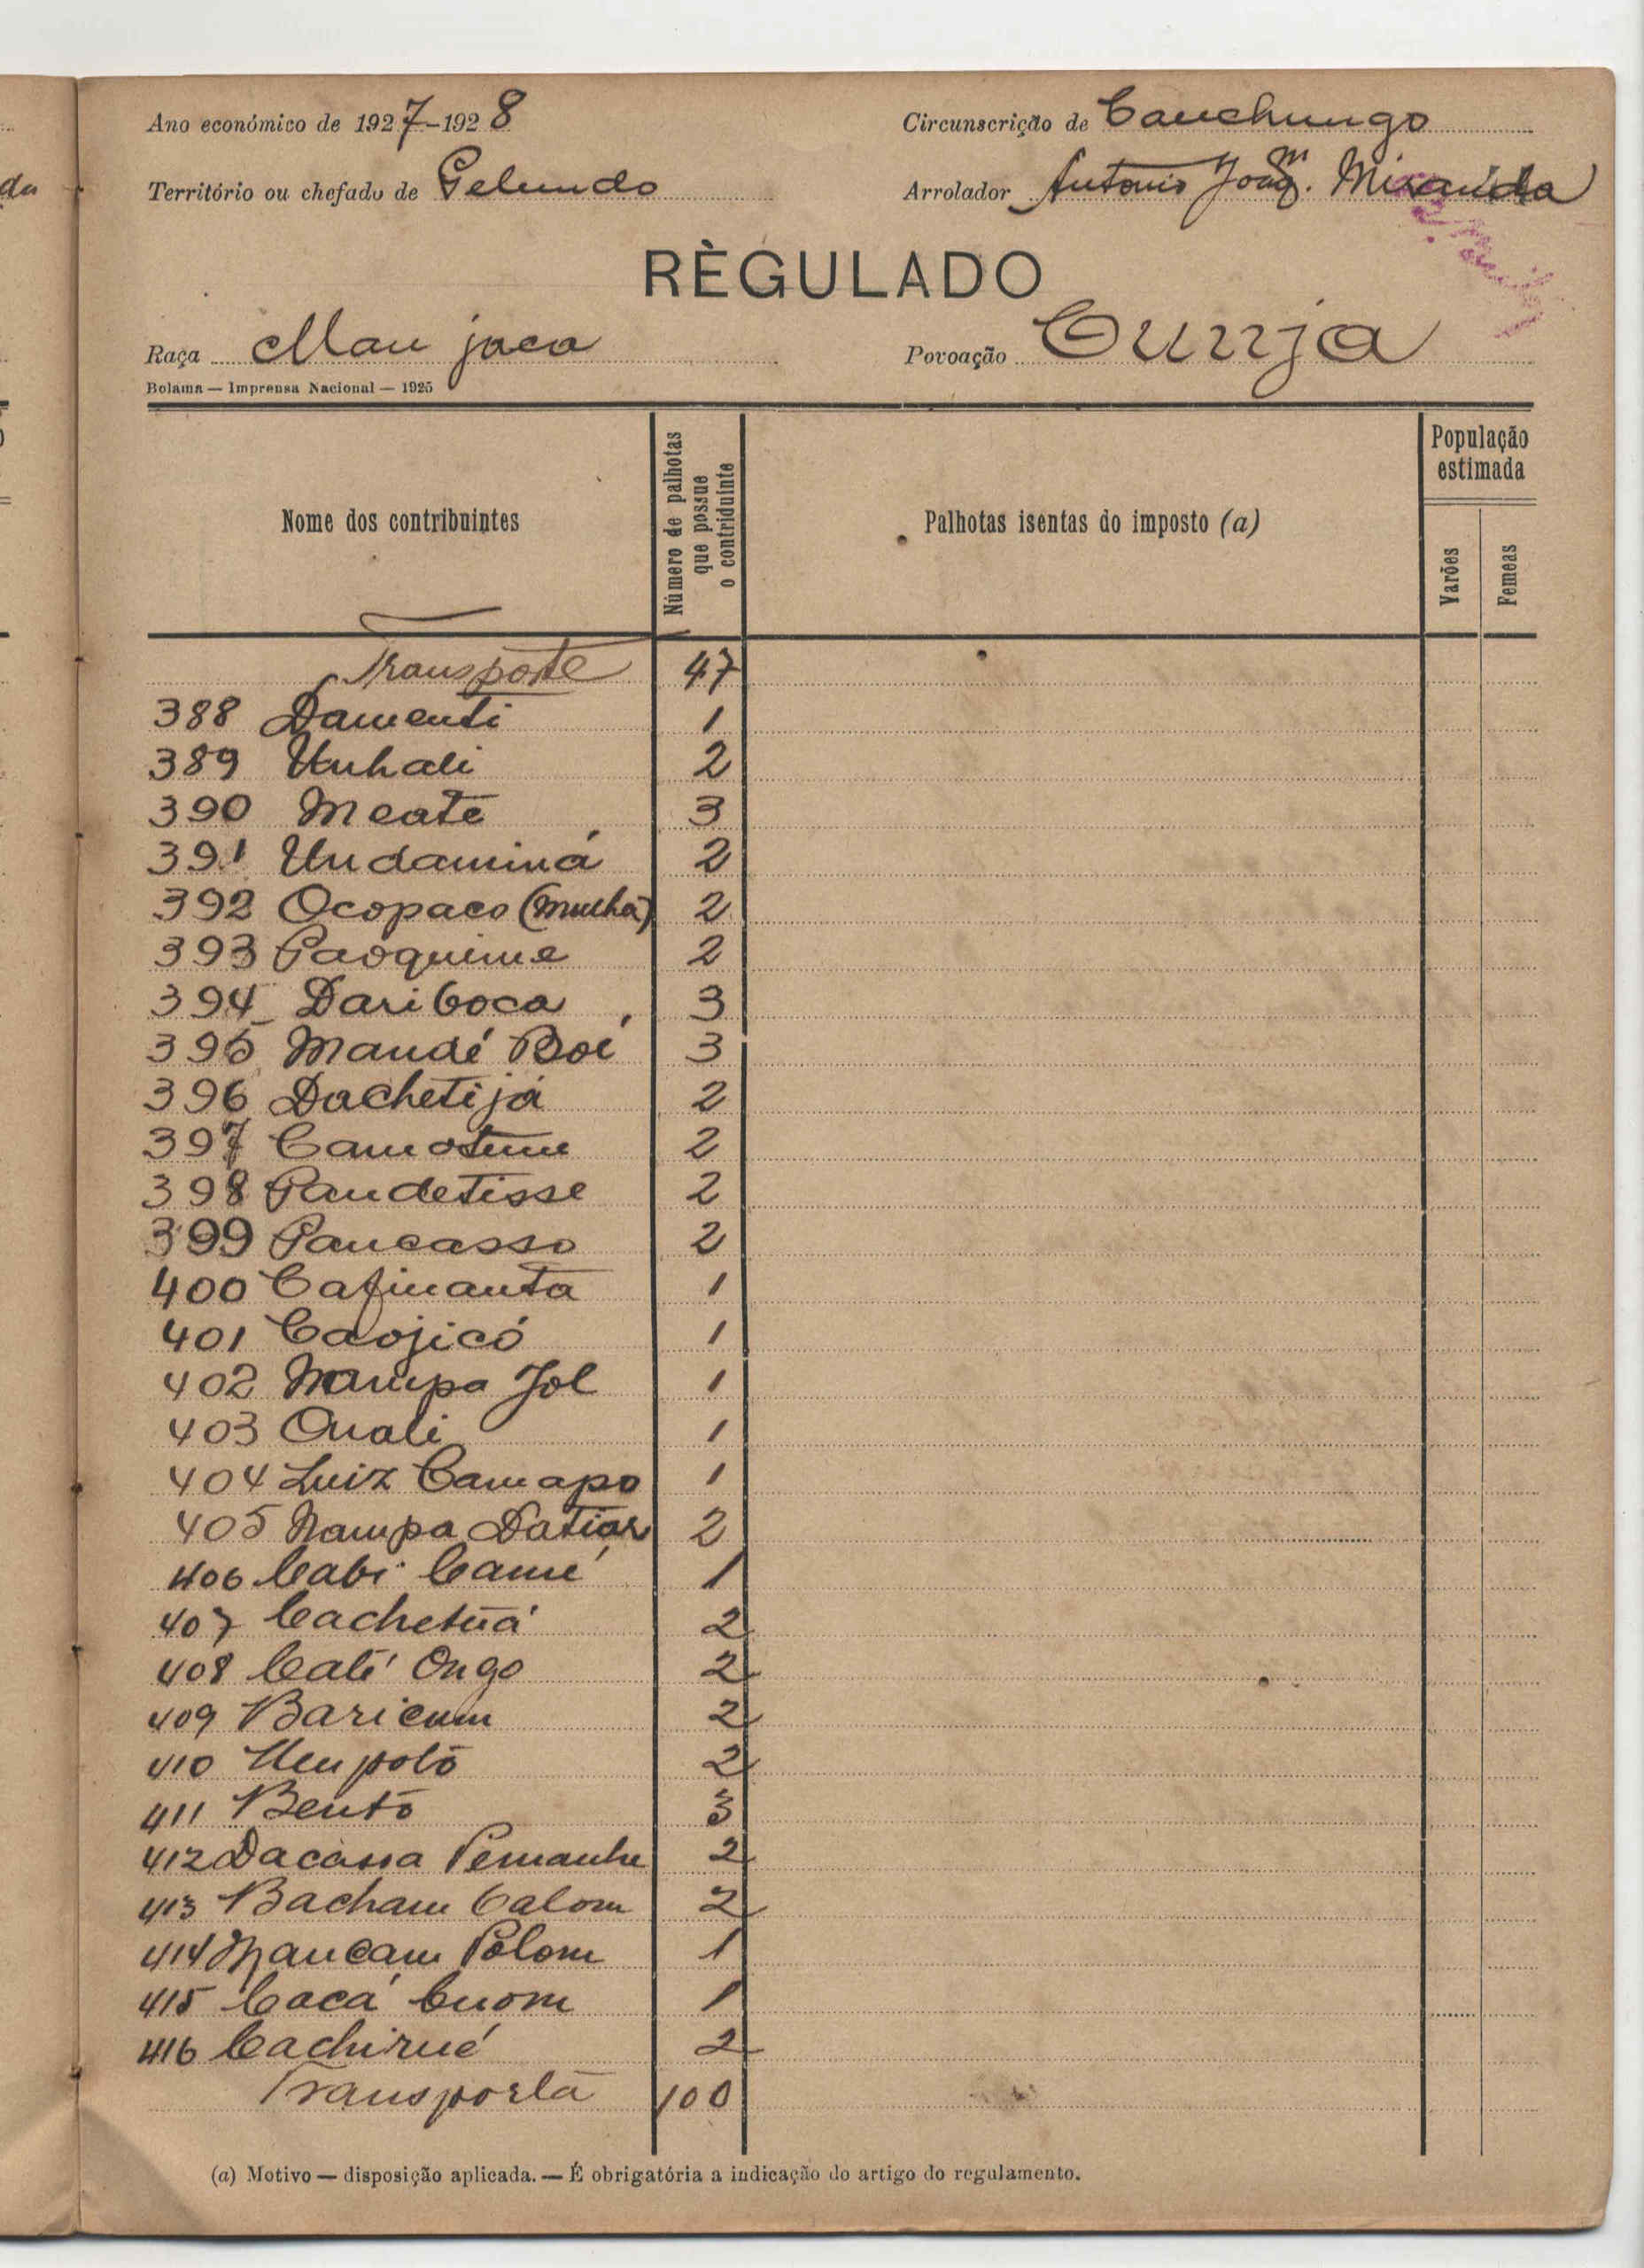 da
Ano económico de 1927-1928
Circunscrição de Canchungo
Território ou chefado de Gelundo
Arrolador Antonio Joaqm. Miranda
RÈGULADO
Raça Manjaca
Povoação Cunja
Bolama — Imprensa Nacional — 1925
Nome dos contribuintes
Número de palhotas
que possue
o contriduinte
Palhotas isentas do imposto (a)
População
estimada
Varões
Femeas
Transporte 47
388 Damenti 1
389 Unhali 2
390 Meate 3
391 Undaminá 2
392 Ocopaco (mulhá) 2
393 Paoquime 2
394 Dariboca 3
395 Mandé Boé 3
396 Dachetijá 2
397 Camotime 2
398 Pandetisse 2
399 Pancasso 2
400 Cafinanta 1
401 Caojicó 1
402 Nampa Jol 1
403 Onali 1
404 Luiz Camapo 1
405 Nampa Datiar 2
406 Cabi Camé 1
407 Cachetuá 2
408 Calé Ongo 2
409 Baricum 2
410 Umpolō 2
411 Bentō 3
412 Dacassa Pemanhe 2
413 Bacham Calom 2
414 Mancam Polom 1
415 Cacá Cuom 1
416 Cachirué 2
Transporta 100
(a) Motivo — disposição aplicada. — É obrigatória a indicação do artigo do regulamento.